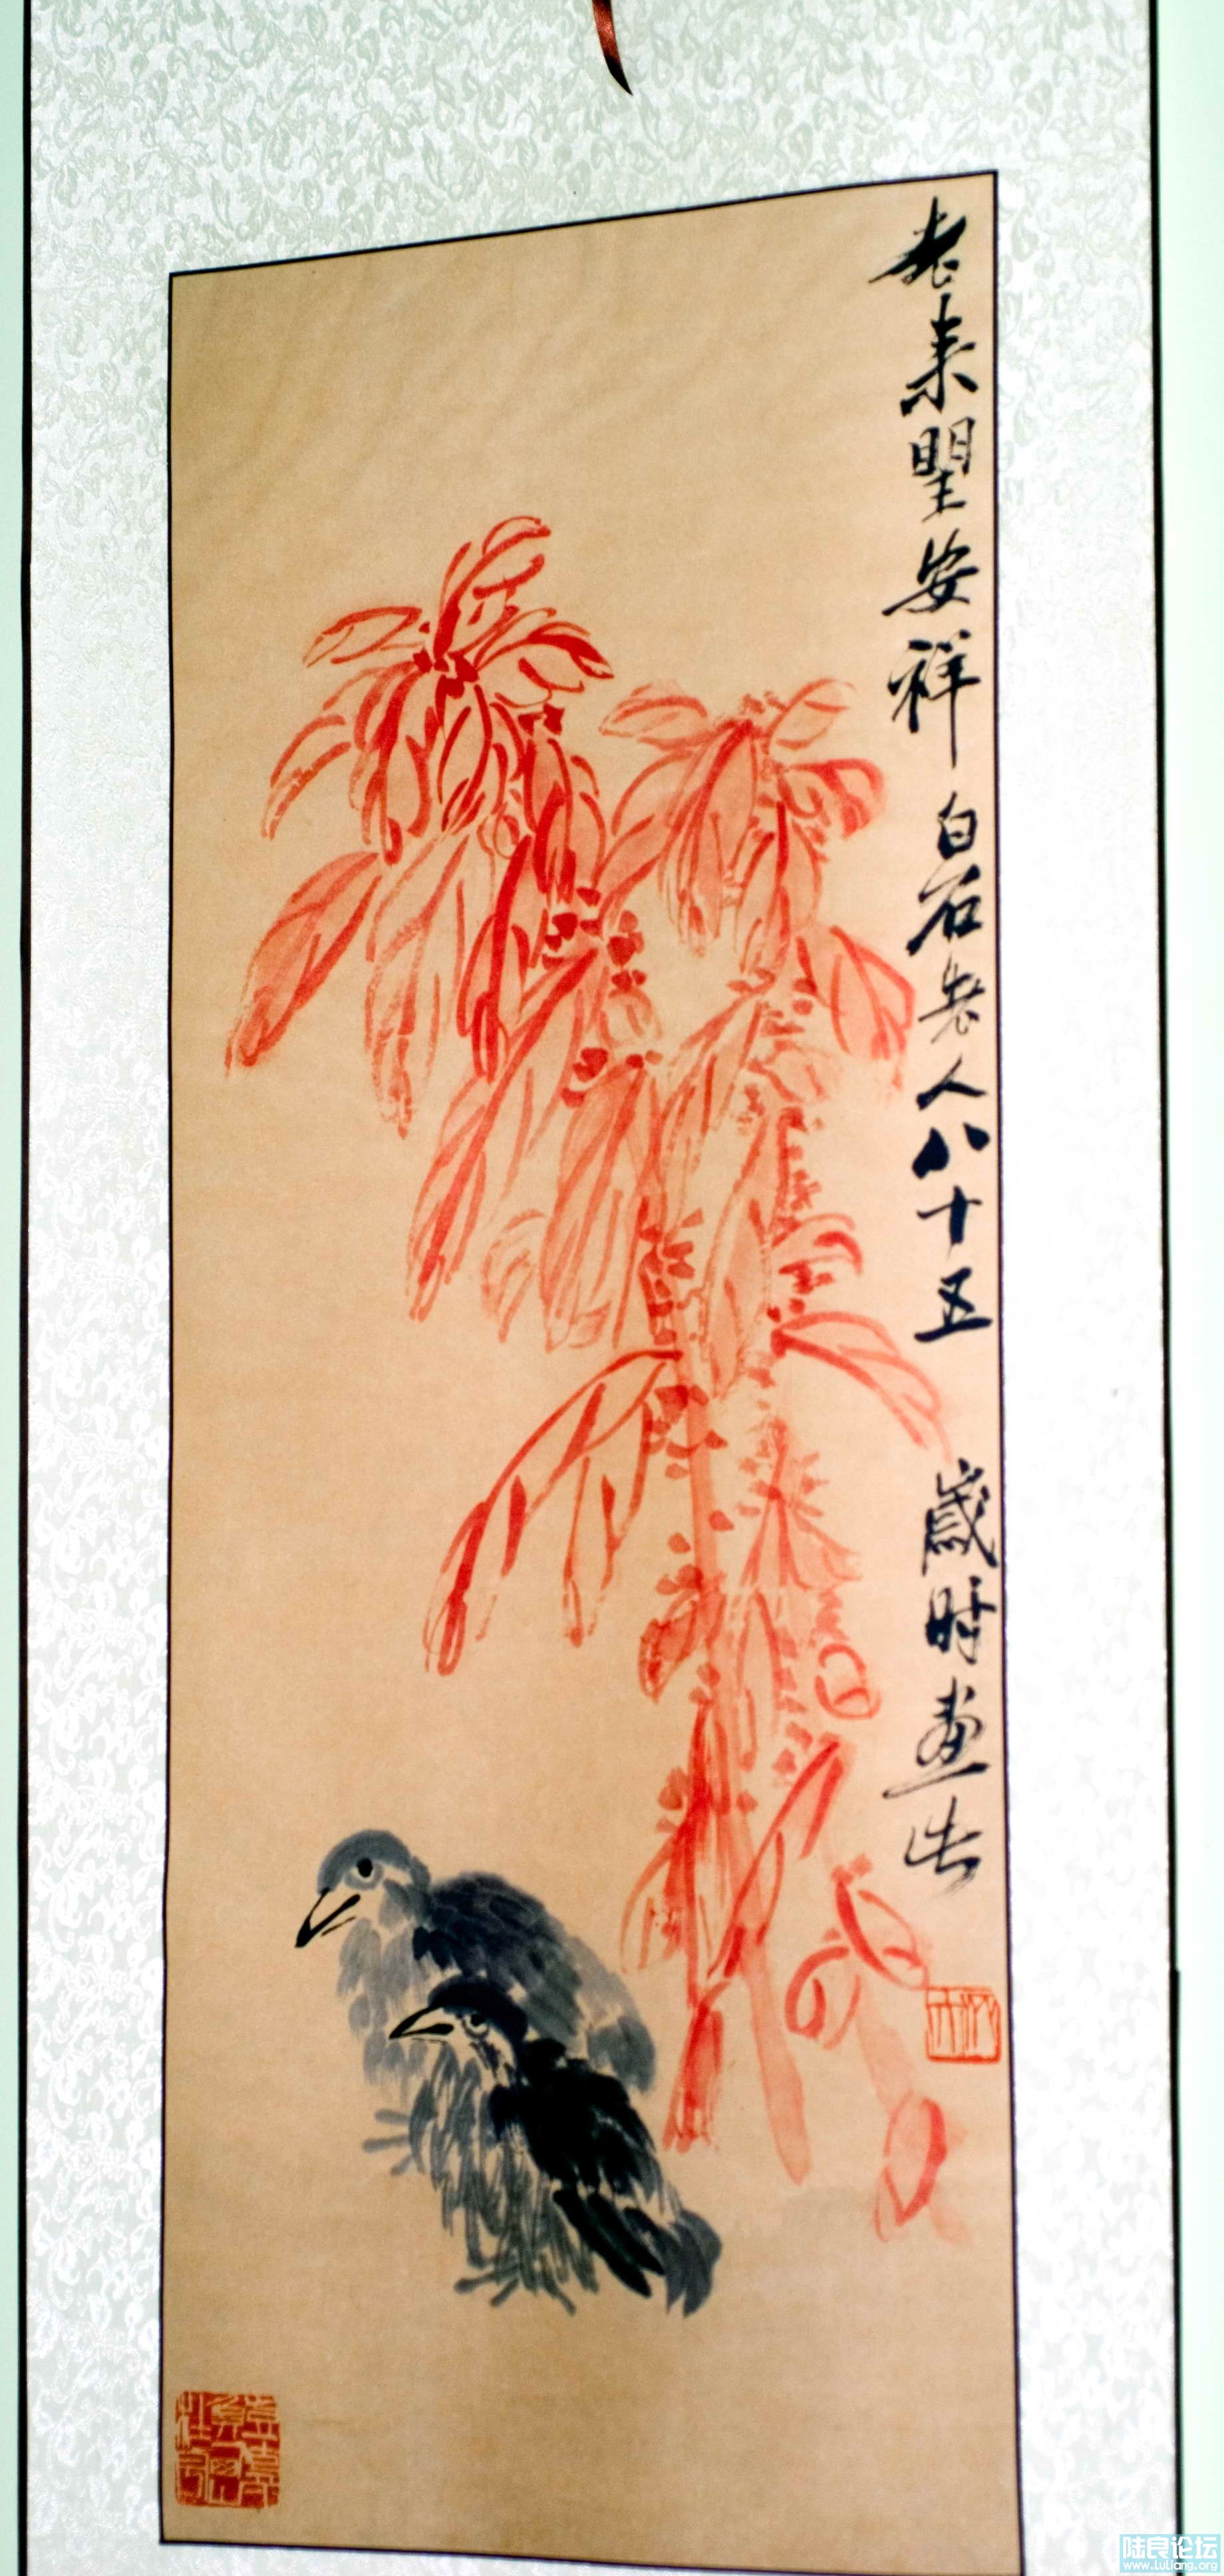 老来望安祥 白石老人八十五 岁时画出
陆良论坛
www.luliang.org